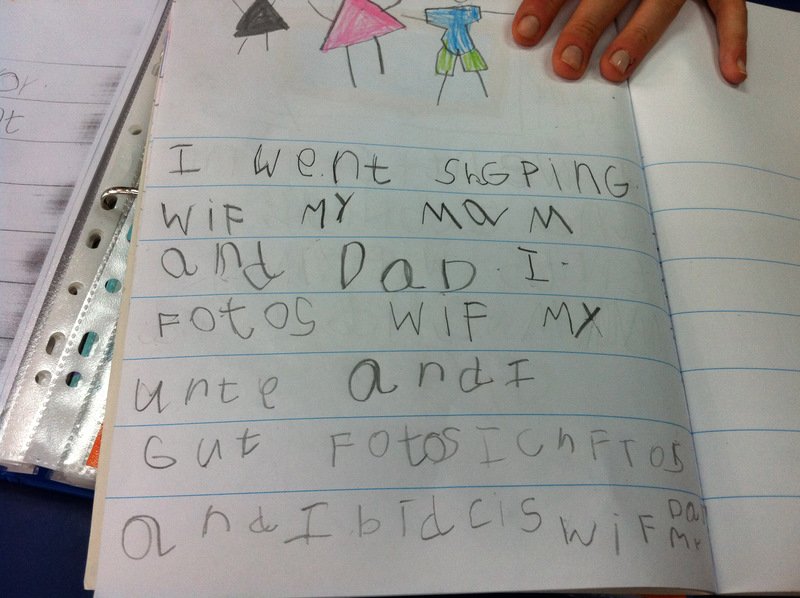 or.
I went ShGPiNG.
WiF MY MaM
and DaD. I.
FOtOS WiF MY
unte andI
Gut FOtOSICnFTOS
andIbidcis WiF Dan
MY